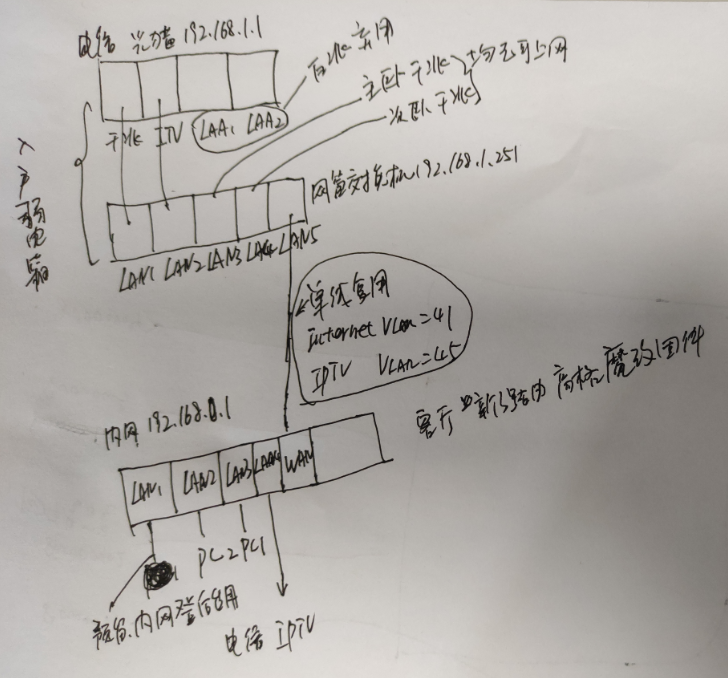 电信 光猫 192.168.1.1
百兆弃用
千兆 ITV LAA1 LAA2
主卧 千兆
次卧 千兆
均可上网
入户弱电箱
网管交换机192.168.1.251
LAN1 LAN2 LAN3 LAN4 LAN5
单线复用
Internet VLan=41
IPTV VLAN=45
内网 192.168.0.1
客厅 新3 路由 高格魔改固件
LAN1 LAN2 LAN3 LAN4 WAN
PC2 PC1
预留.内网登陆用
电信 IPTV